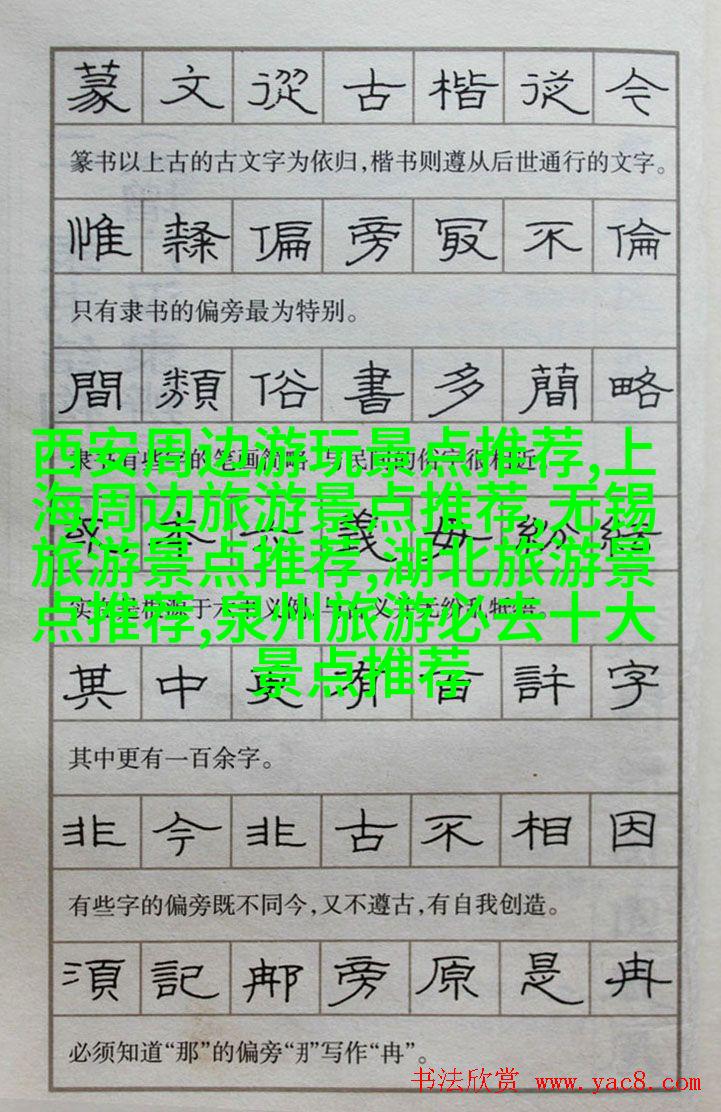 篆文從古楷從今
篆书以上古的古文字为依归,楷书则遵从后世通行的文字。
惟隸偏旁冣不倫
只有隶书的偏旁最为特别。
間類俗書多簡略
西安周边游玩景点推荐,上
海周边旅游景点推荐,无锡
旅游景点推荐,湖北旅游景
点推荐,泉州旅游必去十大
景点推荐
其中更有百許字
其中更有一百余字。
非今非古不相因
有些字的偏旁既不同今,又不遵古,有自我创造。
須記那旁原是冉
必须知道“那”的偏旁“”写作“冉”。
书法欣赏 www.yac8.com